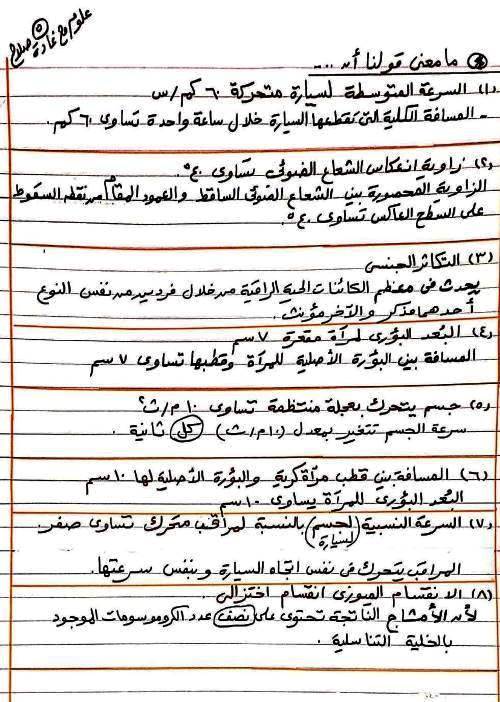 علوم مع غادة صلاح
ما معنى قولنا أن ....
(١) السرعة المتوسطة لسيارة متحركة ٦٠ كم/س
- المسافة الكلية التى تقطعها السيارة خلال ساعة واحدة تساوى ٦٠ كم.
(٢) زاوية انعكاس الشعاع الضوئى تساوى ٤٠°.
الزاوية المحصورة بين الشعاع الضوئى الساقط والعمود المقام من نقطة السقوط
على السطح العاكس تساوى ٤٠°.
(٣) التكاثر الجنسى
يحدث فى معظم الكائنات الحية الراقية من خلال فردين من نفس النوع
أحدهما مذكر والآخر مؤنث.
(٤) البُعد البؤرى لمرآة مقعرة ٧سم
المسافة بين البؤرة الأصلية للمرآة وقطبها تساوى ٧ سم
(٥) جسم يتحرك بعجلة منتظمة تساوى ١٠ م/ث٢
سرعة الجسم تتغير بمعدل (١٠ م/ث) كل ثانية .
(٦) المسافة بين قطب مرآة كرية والبؤرة الأصلية لها ١٠ سم
البُعد البؤرى للمرآة يساوى ١٠ سم
(٧) السرعة النسبية (لجسم) بالنسبة لمراقب متحرك تساوى صفر.
لسيارة
المراقب يتحرك فى نفس اتجاه السيارة وبنفس سرعتها.
(٨) الانقسام الميوزى انقسام اختزالى.
لأن الأمشاج الناتجة تحتوى على نصف عدد الكروموسومات الموجود
بالخلية التناسلية .